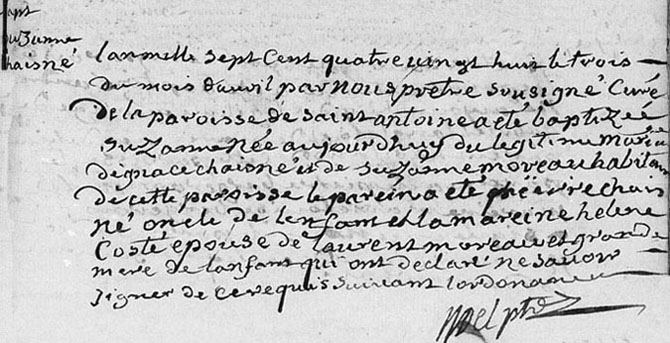 apt
suzanne
chaisné
lan mille sept Cent quatre vingt huit le trois
du mois d'avril par nous prêtre sousigné Curé
de la paroisse de saint antoine a été baptizée
suzanne née aujourd'huy du legitime mariage
d'ignace chaisné et de suzanne moreau habitan
de cette paroisse le parein a été chai
né oncle de lenfant et la mareine helene
Costé epouse de laurent moreau et grande
mere de lanfant qui ont declaré ne savoir
signer de ce requis suivant lordonance
ptre